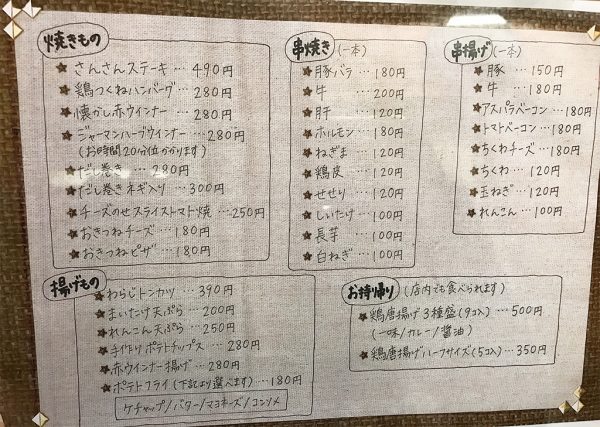 焼きもの
さんさんステーキ … 490円
鶏つくねハンバーグ … 280円
懐かし赤ウインナー … 280円
ジャーマンハーブウインナー … 280円
(お時間20分位かかります)
だし巻き … 280円
だし巻きネギ入り … 300円
チーズのせスライストマト焼 … 250円
おきつねチーズ … 180円
おきつねピザ … 180円
串焼き (一本)
豚バラ … 180円
牛 … 200円
肝 … 120円
ホルモン … 180円
ねぎま … 120円
鶏皮 … 120円
せせり … 120円
しいたけ … 100円
長芋 … 100円
白ねぎ … 100円
串揚げ (一本)
豚 … 150円
牛 … 180円
アスパラベーコン … 180円
トマトベーコン … 180円
ちくわチーズ … 180円
ちくわ … 120円
玉ねぎ … 120円
れんこん … 100円
揚げもの
わらじトンカツ … 390円
まいたけ天ぷら … 200円
れんこん天ぷら … 250円
手作りポテトチップス … 280円
赤ウインナー揚げ … 280円
ポテトフライ (下記より選べます) … 180円
ケチャップ/バター/マヨネーズ/コンソメ
お持ち帰り (店内でも食べられます)
鶏唐揚げ3種盛(9コ入) … 500円
(一味/カレー/醤油)
鶏唐揚げハーフサイズ(5コ入) … 350円